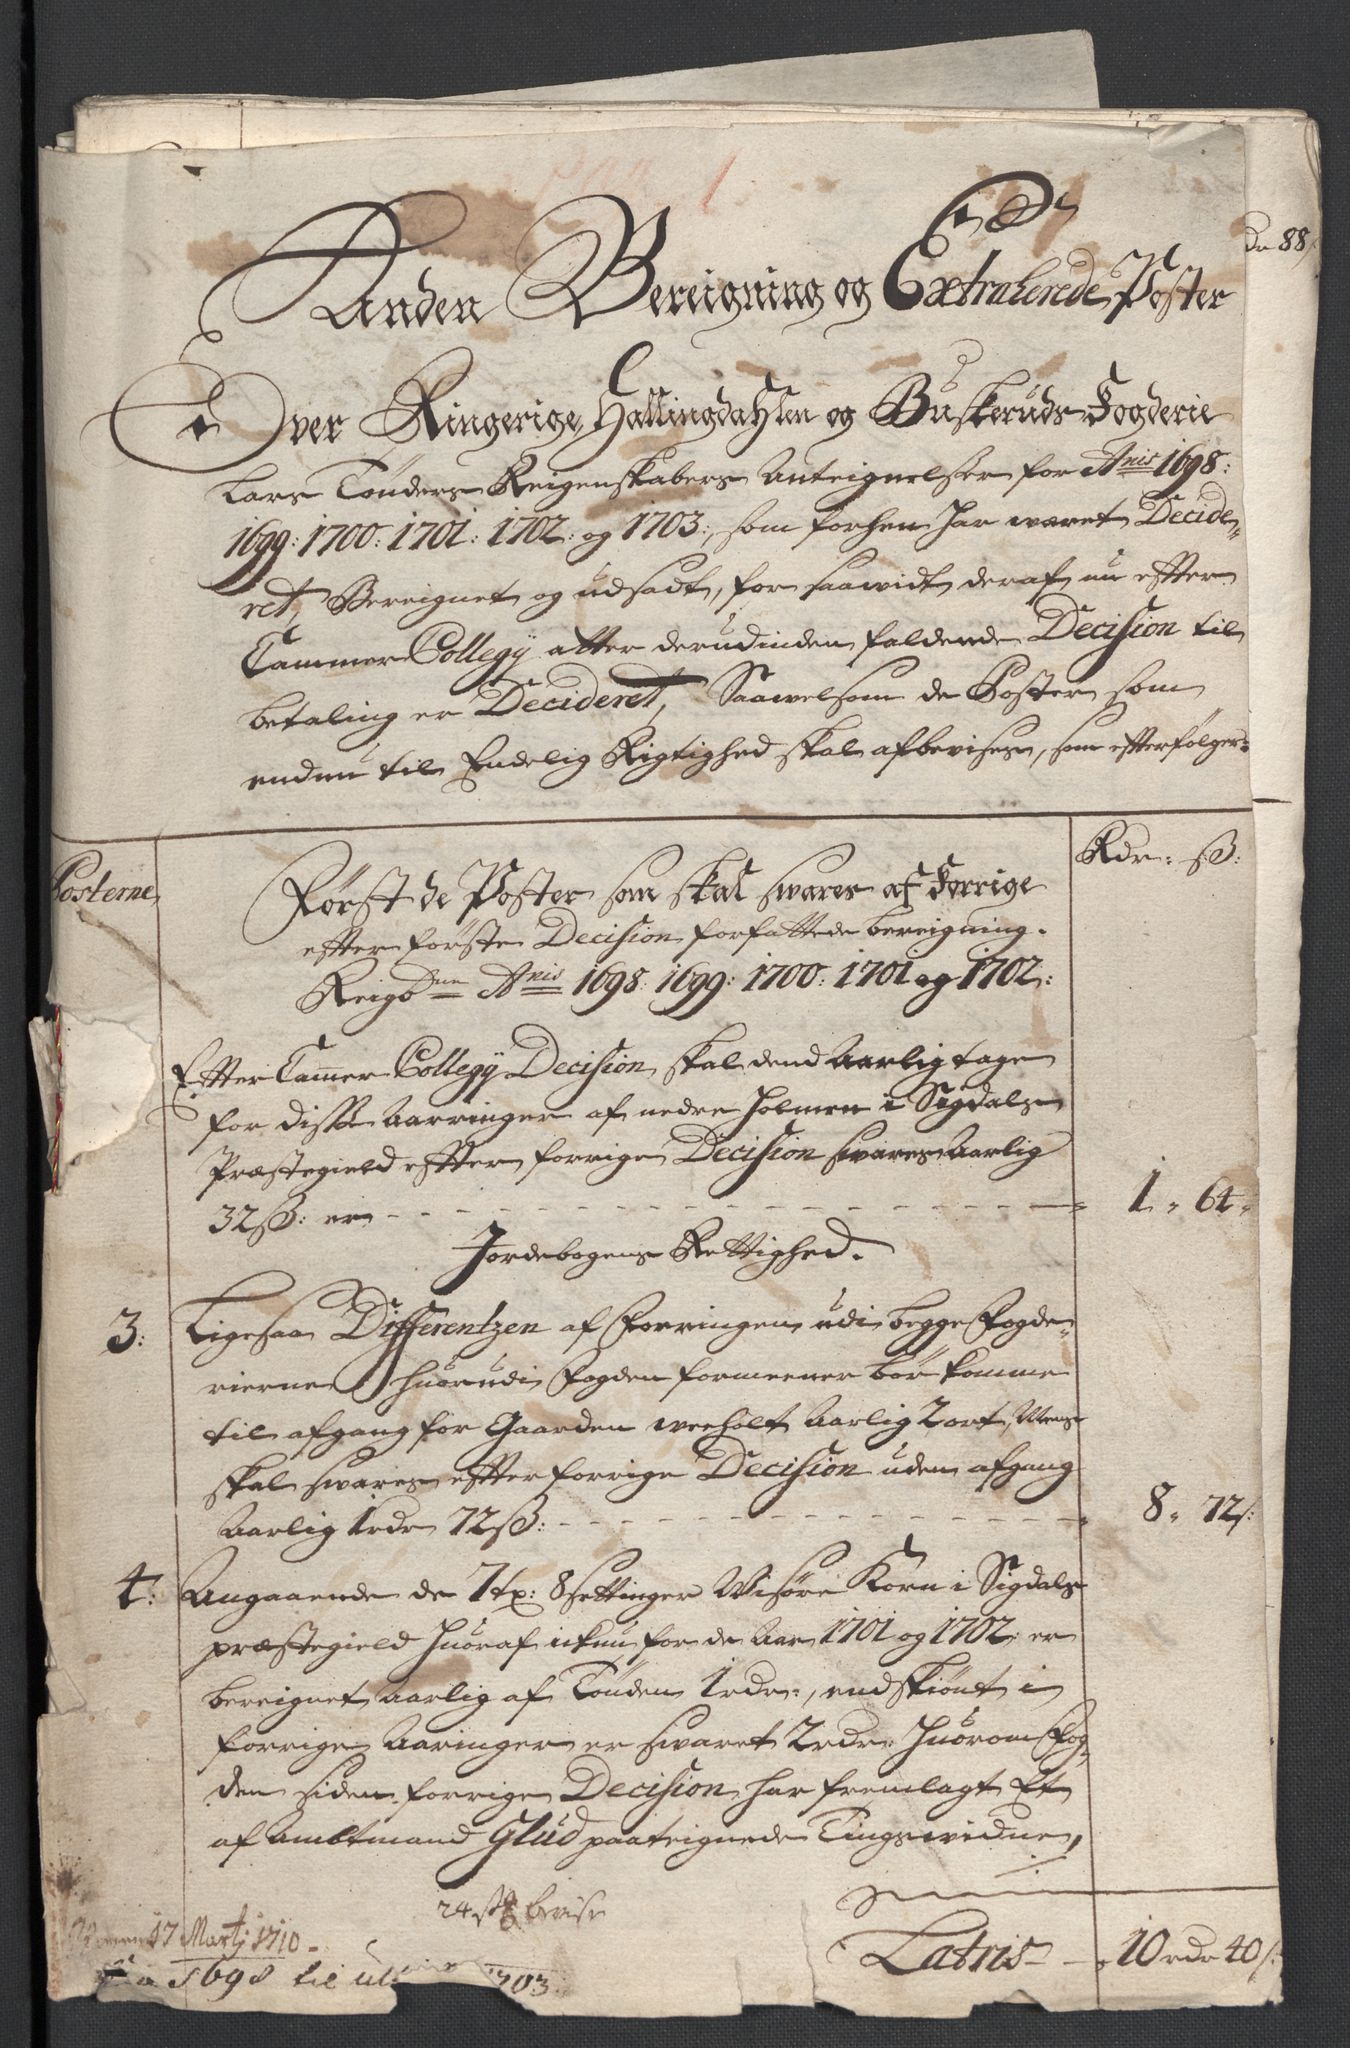 Anden Bereigning og Extraherede Poster
Over Ringerige, Hallingdahlen og Buskeruds Fogderie
Lars Tønders Reigenskabers Anteignelser for Anis 1698:
1699: 1700: 1701: 1702: og 1703:, som forhen har wæret Decide-
ret, Bereignet og udsadt, for saawidt deraf nu efter
Cammer Collegy atter derudinden faldende Decision til
betaling er Decideret, Saawelsom de Poster som
endnu til Endelig Rigtighed skal afbevises, som efterfølger:
dr 88
Posterne
Rdr: ß:
Først de Poster som skal swares af forrige
efter første Decision forfattede bereigning.
Reigb Anis 1698: 1699: 1700: 1701 og 1702:
Efter Cammer Collegy Decision skal dend Aarlig tage
for disse Aaringer af nedre Holmen i Sigdals
Præstegield efter forrige Decision swares Aarlig
32 ß: er - - - 1 " 64 "
Jordebogens Rettighed.
3: Ligesaa Differentzen af Forringen udi begge Fogde-
rierne, huorudi Fogden formeener bør komme
til afgang for Gaarden weeholt Aarlig 2 ort, Mens
skal swares efter forrige Decision uden afgang
Aarlig 1 rdr 72 ß: - - - 8 " 72 ß:
4: Angaaende de 7 tx: 8 Settinger Wisøre Korn i Sigdals
præstegield huoraf ickun for de Aar 1701 og 1702: er
bereignet aarlig af Tønden 1 rdr:, endskiønt i
forrige Aaringer er swaret 2 rdr: huorom Fog-
den siden forrige Decision har fremlagt Et
af Ambtmand Glud paateignede Tingswidne,
24 bevise
17 Martj 1710
1698 til 1703:
Latris - 10 rdr 40 ß: